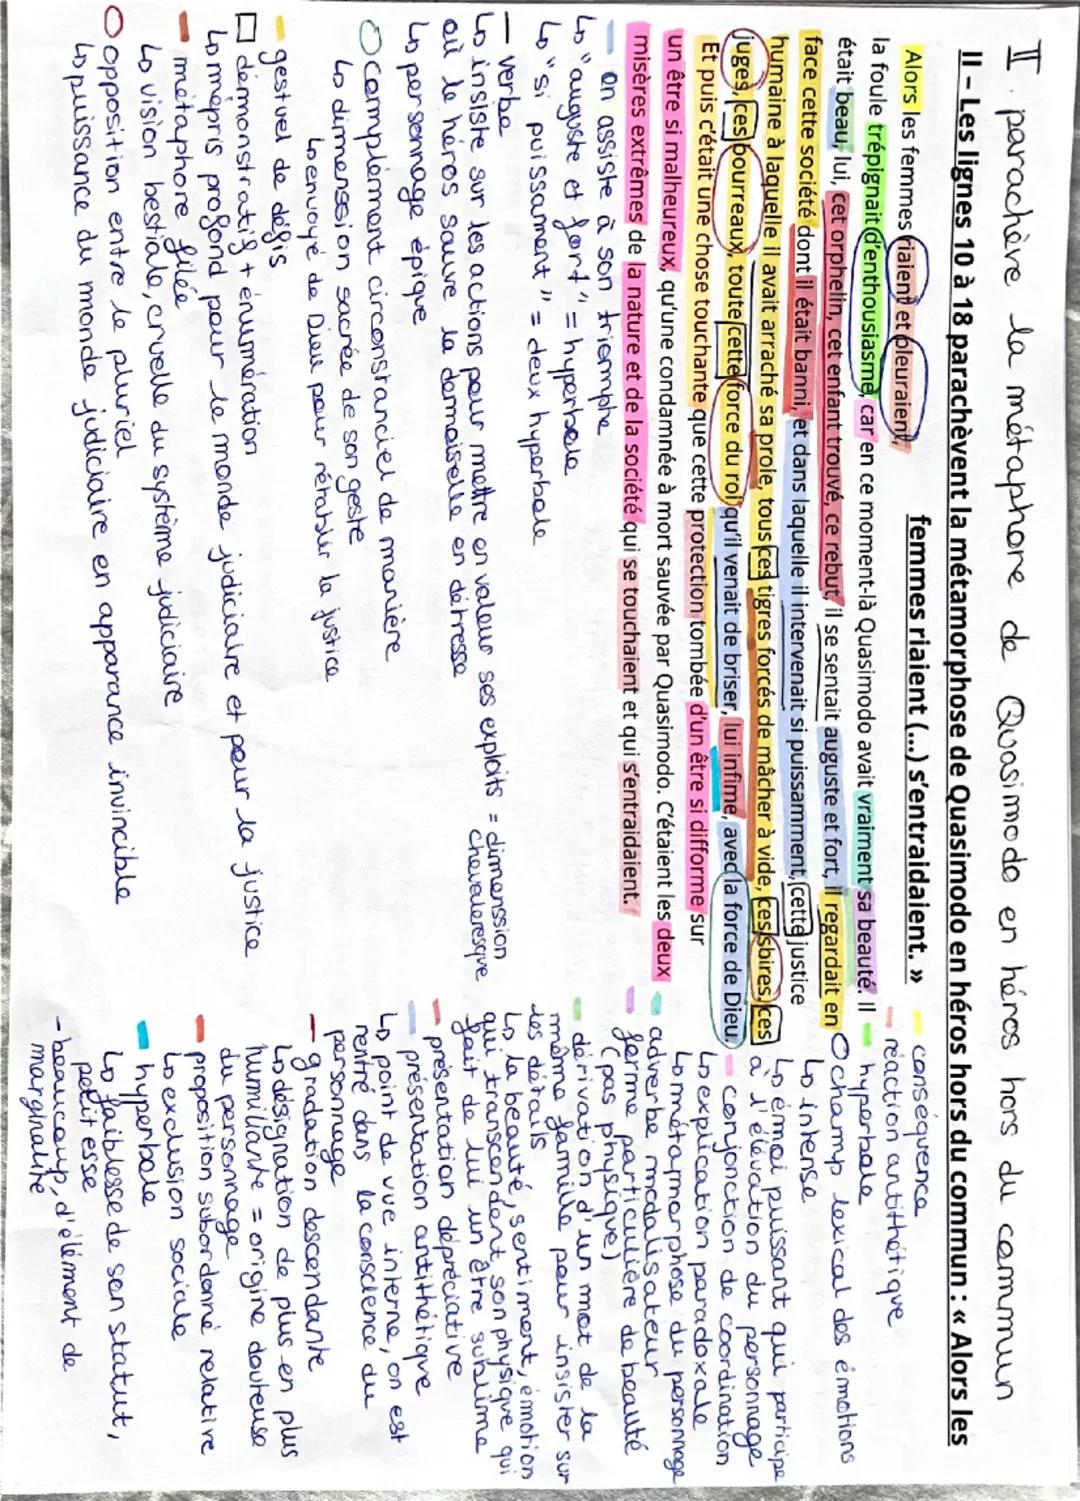 II. parachère la métaphore de Quasimodo en héros hors du commun
II - Les lignes 10 à 18 parachèvent la métamorphose de Quasimodo en héros hors du commun : « Alors les
femmes riaient (...) s'entraidaient. »
Alors les femmes riaient et pleuraient,
la foule trépignait d'enthousiasme, car en ce moment-là Quasimodo avait vraiment sa beauté. Il
était beau, lui, cet orphelin, cet enfant trouvé, ce rebut, il se sentait auguste et fort, il regardait en
face cette société dont il était banni, et dans laquelle il intervenait si puissamment, cette justice
humaine à laquelle il avait arraché sa proie, tous ces tigres forcés de mâcher à vide, ces sbires, ces
juges, ces bourreaux, toute cette force du roi qu'il venait de briser, lui infime, avec la force de Dieu.
Et puis c'était une chose touchante que cette protection tombée d'un être si difforme sur
un être si malheureux, qu'une condamnée à mort sauvée par Quasimodo. C'étaient les deux
misères extrêmes de la nature et de la société qui se touchaient et qui s'entraidaient.
- on assiste à son triomphe
↳ "auguste et fort" = hyperbole
↳ "si puissament" = deux hyperbole
- verbe
↳ insiste sur les actions pour mettre en valeur ses exploits = dimenssion chevaleresque
où le héros sauve la demoiselle en détresse
↳ personnage épique
O complément circonstanciel de manière
↳ dimension sacrée de son geste
↳ envoyé de Dieu pour rétablir la justice
- gestuel de défis
□ démonstratif + énumération
↳ mépris profond pour le monde judiciaire et pour la justice
- métaphore filée
↳ vision bestiale, cruelle du système judiciaire
O opposition entre le pluriel
↳ puissance du monde judiciaire en apparance invincible
- conséquence
- réaction antithétique
- hyperbole
O champ lexical des émotions
↳ intense
↳ émoi puissant qui participe
à l'élévation du personnage
- conjonction de coordination
↳ explication paradoxale
↳ métapmorphose du personnage
- adverbe modalisateur
- forme particulière de beauté
(pas physique)
- dérivation d'un mot de la
même famille pour insister sur
les détails
↳ la beauté, sentiment, émotion
qui transcendent son physique qui
fait de lui un être sublime
- présentation dépréciative
- présentation antithétique
↳ point de vue interne, on est
rentré dans la conscience du
personnage
- gradation descendante
↳ désignation de plus en plus
humiliante = origine douteuse
du personnage
- proposition subordonné relative
↳ exclusion sociale
- hyperbole
↳ faiblesse de son statut,
petitesse
- beaucoup, d'élément de
marginalité